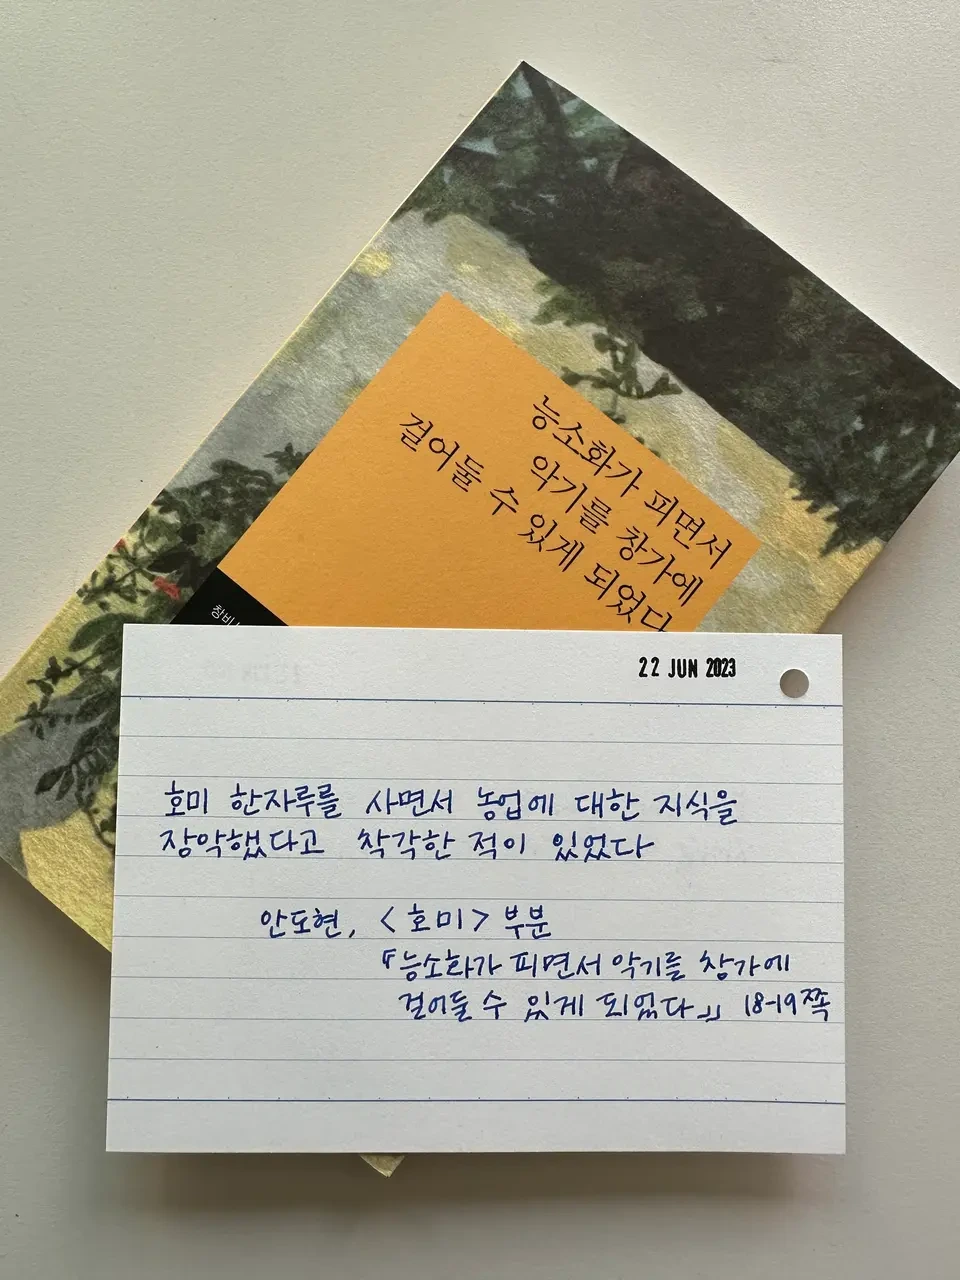 능소화가 피면서
악기를 창가에
걸어둘 수 있게 되었다
창비
22 JUN 2023
호미 한자루를 사면서 농업에 대한 지식을
장악했다고 착각한 적이 있었다
안도현, <호미> 부분
『능소화가 피면서 악기를 창가에
걸어둘 수 있게 되었다』 18-19쪽